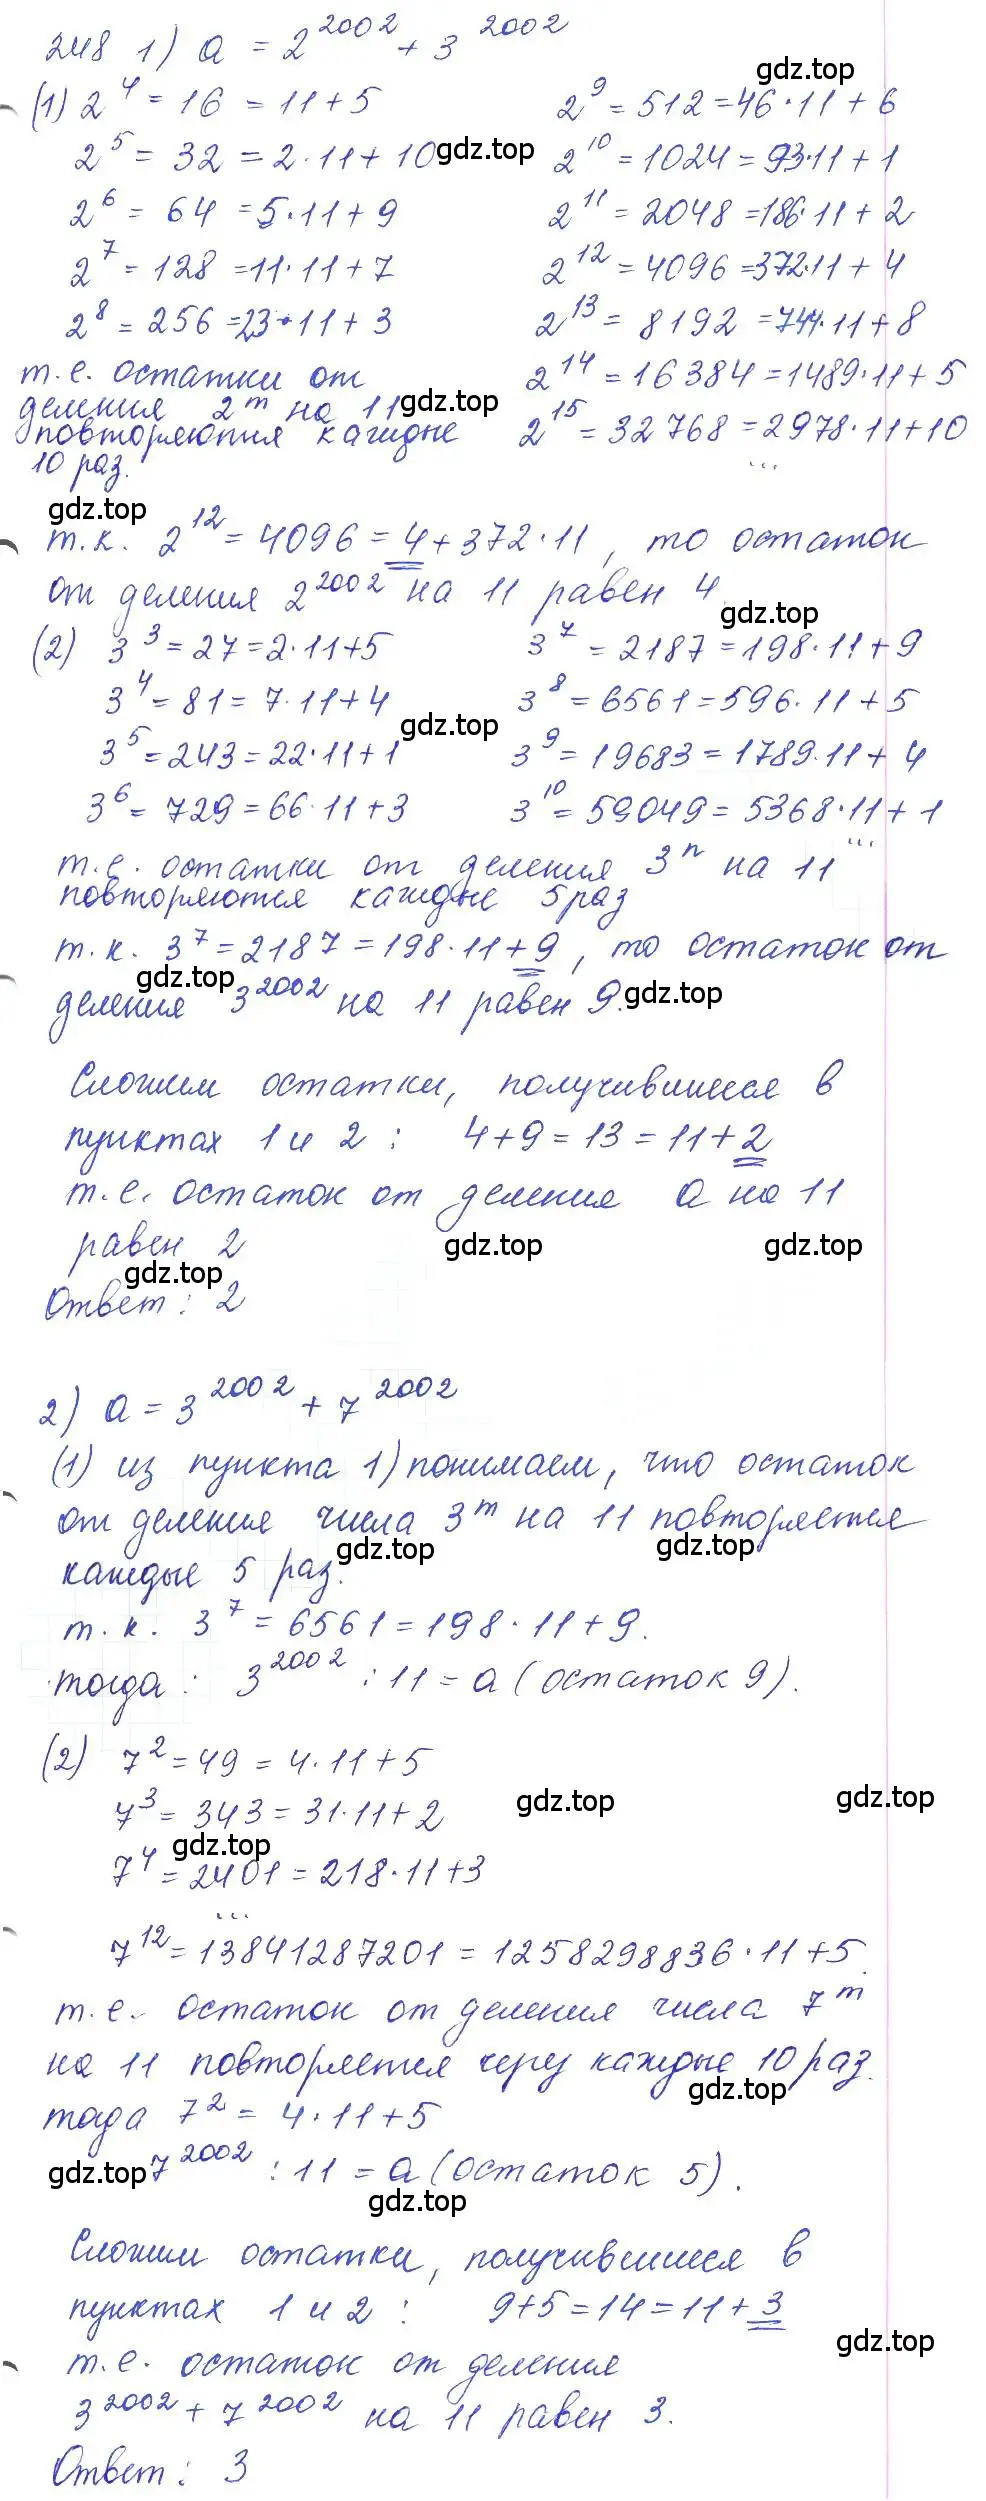 248 1) a = 2^2002 + 3^2002
gdz.top
(1) 2^4 = 16 = 11 + 5
2^9 = 512 = 46·11 + 6
2^5 = 32 = 2·11 + 10
gdz.top
2^10 = 1024 = 93·11 + 1
2^6 = 64 = 5·11 + 9
2^11 = 2048 = 186·11 + 2
2^7 = 128 = 11·11 + 7
2^12 = 4096 = 372·11 + 4
2^8 = 256 = 23·11 + 3
2^13 = 8192 = 744·11 + 8
т.е. остатки от
2^14 = 16 384 = 1489·11 + 5
деления 2^m на 11
gdz.top
повторяются каждые
2^15 = 32 768 = 2978·11 + 10
10 раз.
...
gdz.top
т.к. 2^12 = 4096 = 4 + 372·11, то остаток
от деления 2^2002 на 11 равен 4
gdz.top
(2) 3^3 = 27 = 2·11 + 5
3^7 = 2187 = 198·11 + 9
3^4 = 81 = 7·11 + 4
3^8 = 6561 = 596·11 + 5
gdz.top
3^5 = 243 = 22·11 + 1
3^9 = 19683 = 1789·11 + 4
3^6 = 729 = 66·11 + 3
3^10 = 59049 = 5368·11 + 1
...
т.е. остатки от деления 3^n на 11
повторяются каждые 5 раз
т.к. 3^7 = 2187 = 198·11 + 9, то остаток от
gdz.top
деления 3^2002 на 11 равен 9.
gdz.top
Сложим остатки, получившиеся в
пунктах 1 и 2: 4 + 9 = 13 = 11 + 2
т.е. остаток от деления a на 11
равен 2
gdz.top gdz.top
gdz.top
Ответ: 2
2) a = 3^2002 + 7^2002
(1) из пункта 1) понимаем, что остаток
от деления числа 3^m на 11 повторяется
gdz.top gdz.top
каждые 5 раз.
т.к. 3^7 = 6561 = 198·11 + 9.
тогда: 3^2002 : 11 = a (остаток 9).
(2) 7^2 = 49 = 4·11 + 5
7^3 = 343 = 31·11 + 2
gdz.top gdz.top
gdz.top
7^4 = 2401 = 218·11 + 3
...
7^12 = 13841287201 = 1258298836·11 + 5.
т.е. остаток от деления числа 7^m
на 11 повторяется через каждые 10 раз.
gdz.top
тогда 7^2 = 4·11 + 5
gdz.top
7^2002 : 11 = a (остаток 5).
gdz.top
Сложим остатки, получившиеся в
пунктах 1 и 2: 9 + 5 = 14 = 11 + 3
gdz.top
т.е. остаток от деления
3^2002 + 7^2002 на 11 равен 3.
Ответ: 3